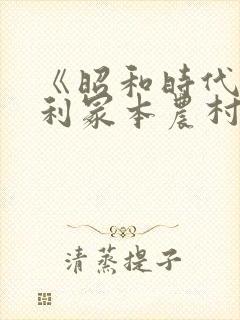 《昭和時代
利冢本農村
清蒸提子